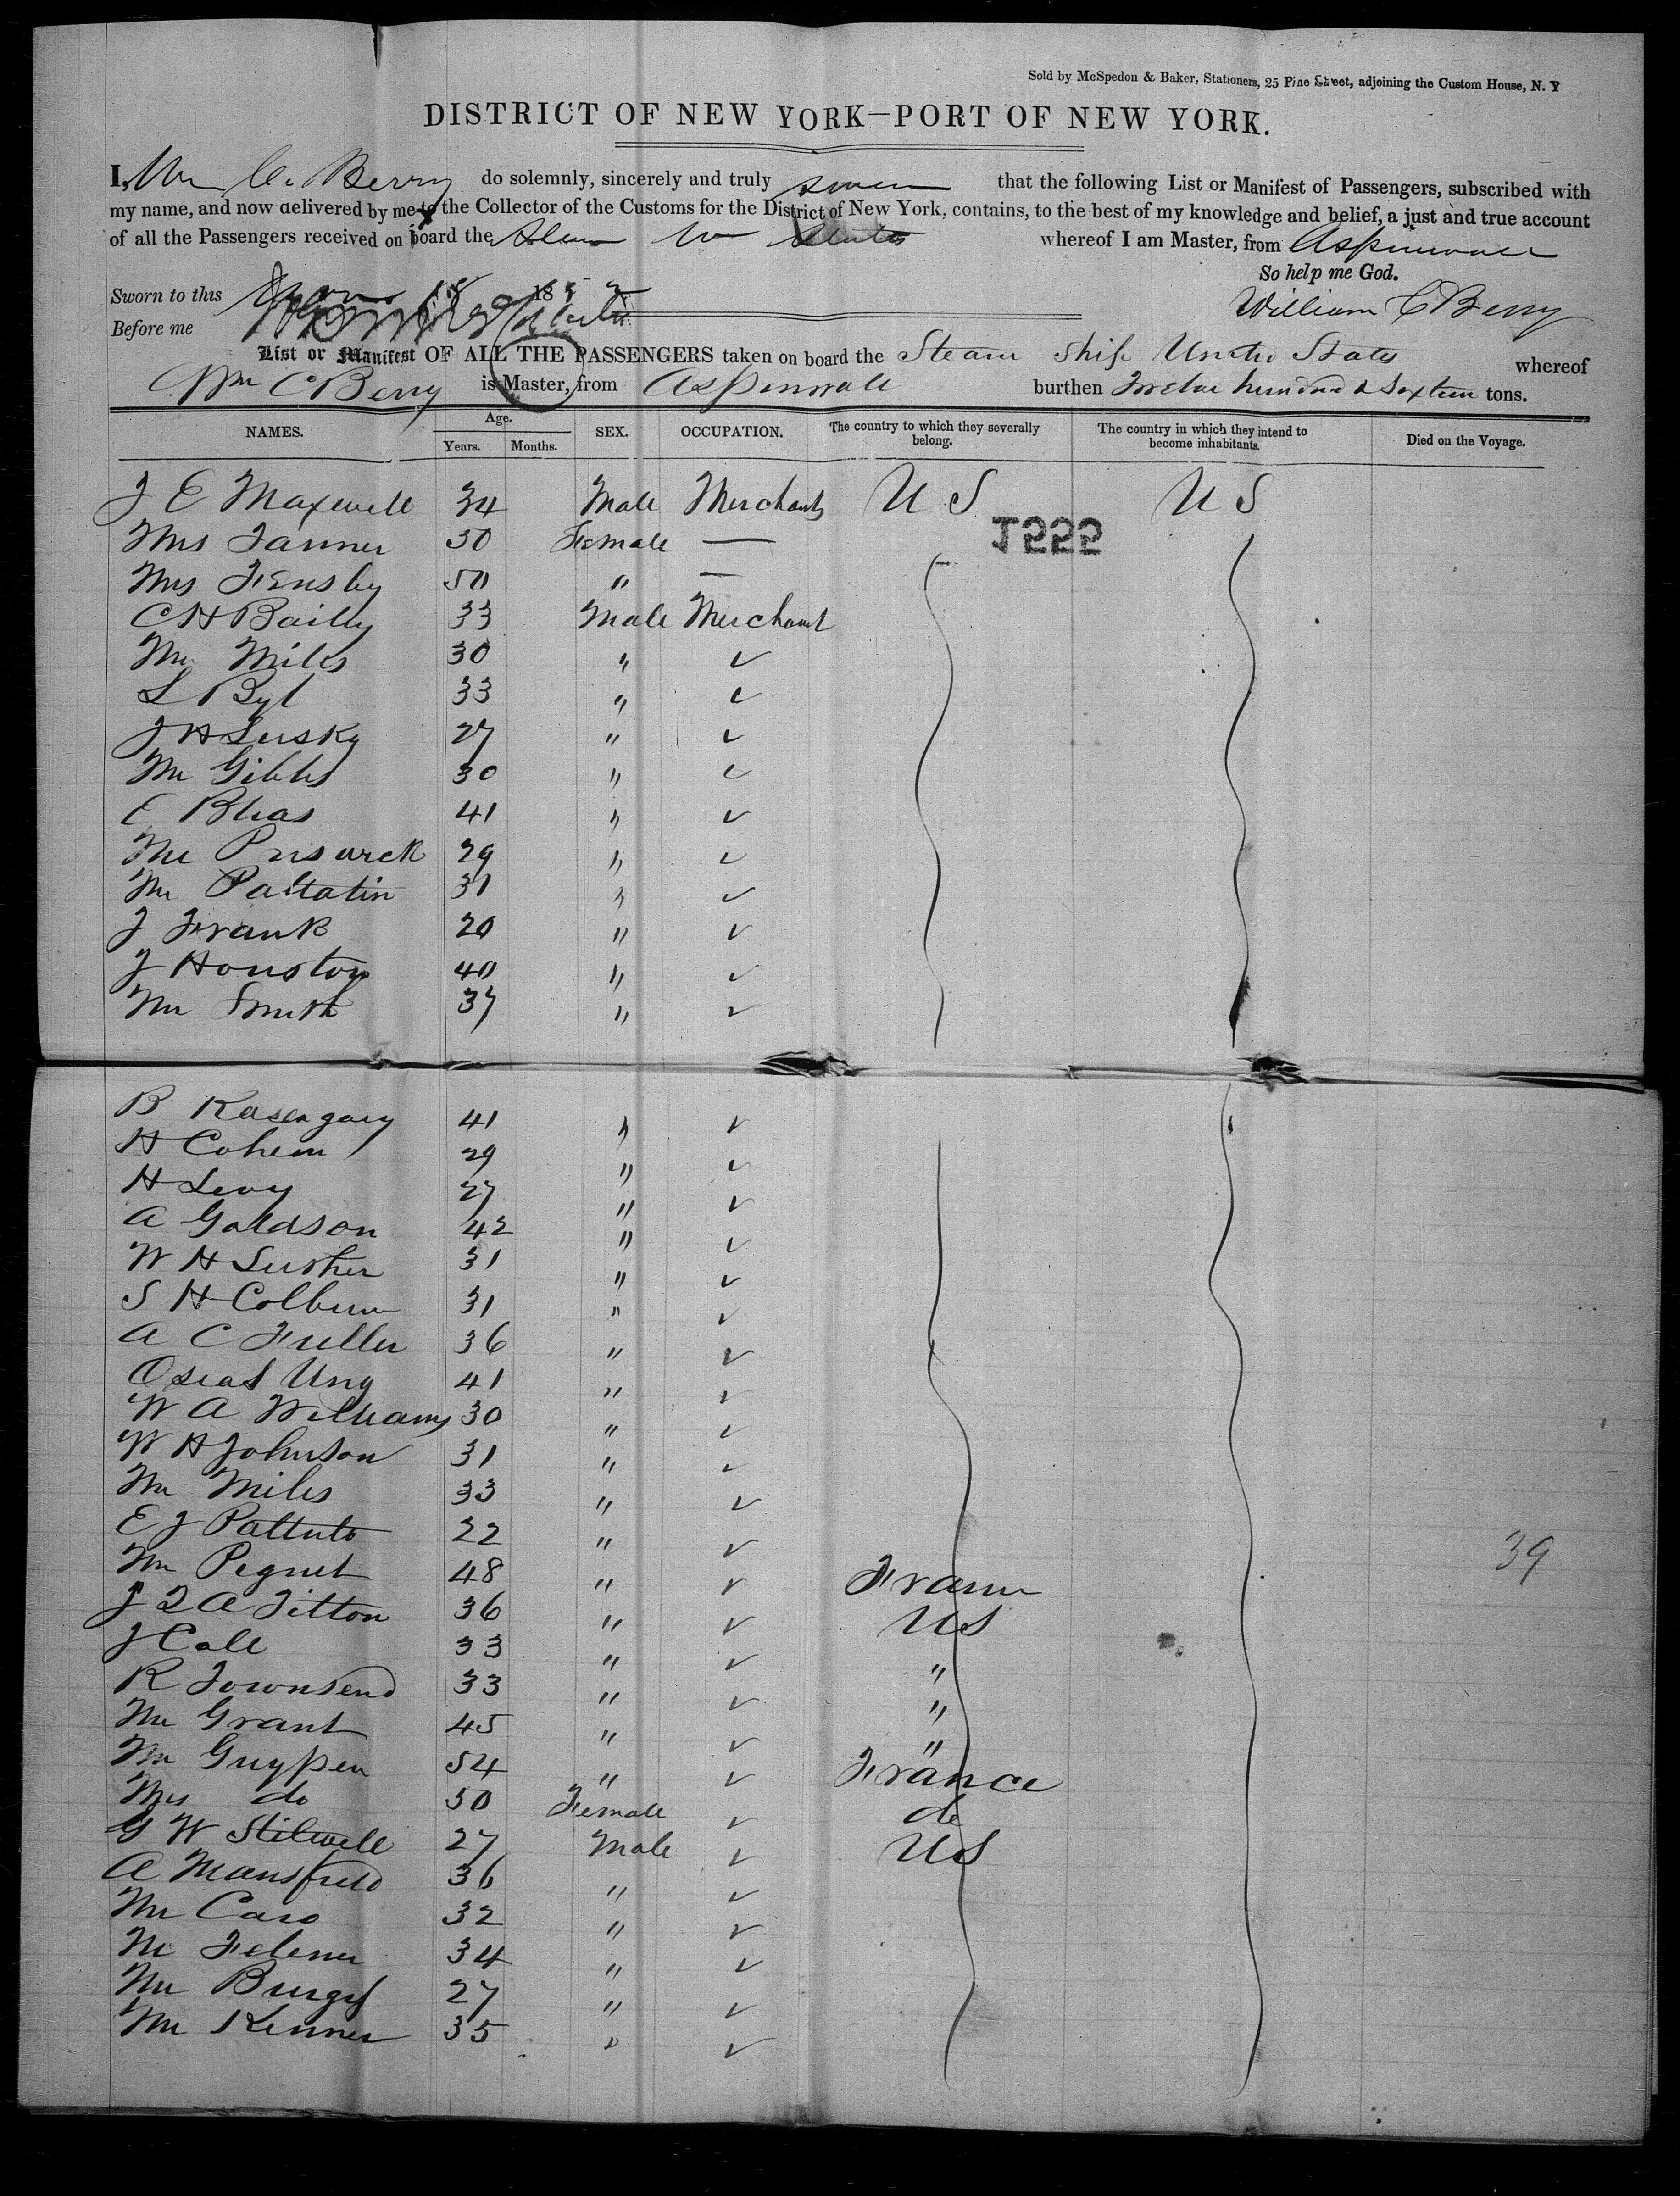 Sold by McSpedon & Baker, Stationers, 25 Pine Street, adjoining the Custom House, N. Y
DISTRICT OF NEW YORK—PORT OF NEW YORK.
I, Wm C. Berry do solemnly, sincerely and truly swear that the following List or Manifest of Passengers, subscribed with
my name, and now delivered by me to the Collector of the Customs for the District of New York, contains, to the best of my knowledge and belief, a just and true account
of all the Passengers received on board the whereof I am Master, from Aspinwall
So help me God.
Sworn to this 18
William C Berry
Before me
List or Manifest OF ALL THE PASSENGERS taken on board the Steam Ship United States whereof
Wm C Berry is Master, from Aspinwall burthen Twelve hundred & Sixteen tons.
NAMES. Age. Years. Months. SEX. OCCUPATION. The country to which they severally belong. The country in which they intend to become inhabitants. Died on the Voyage.
J E Maxwell 34 Male Merchants U S U S
1222
Mrs Tanner 30 Female —
Mrs 50 " —
C H Bailly 33 Male Merchant
Mr Miles 30 " ✓
L Byl 33 " ✓
J H Lusky 27 " ✓
Mr Gibbs 30 " ✓
E 41 " ✓
Mr 29 " ✓
Mr Paltatin 31 " ✓
J Frank 20 " ✓
J Houston 40 " ✓
Mr Smith 37 " ✓
B 41 " ✓
H Cohem 29 " ✓
H Levy 27 " ✓
A Goldson 42 " ✓
W H Luther 31 " ✓
S H Colburn 31 " ✓
A C Fuller 36 " ✓
Ung 41 " ✓
W A Williams 30 " ✓
W H Johnson 31 " ✓
Mr Miles 33 " ✓
E J 22 " ✓
39
Mr Pegnet 48 " ✓ France
J Q A Titton 36 " ✓ US
J Call 33 " ✓ "
R Townsend 33 " ✓ "
Mr Grant 45 " ✓ "
Mr Guypen 54 " ✓ France
Mrs do 50 Female ✓ do
G W Stilwell 27 Male ✓ US
A Mansfield 36 " ✓
Mr Caro 32 " ✓
Mr 34 " ✓
Mr 27 " ✓
Mr Kenner 35 " ✓